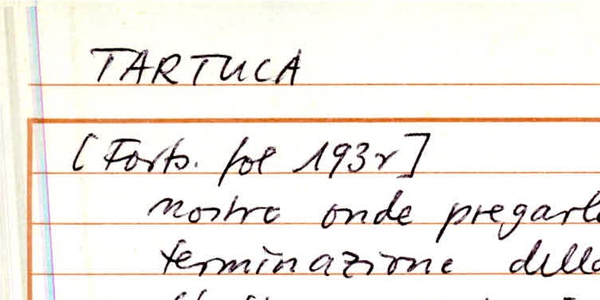 TARTUCA
[Forts. fol 193r]
nostre onde pregarl
terminazione dell